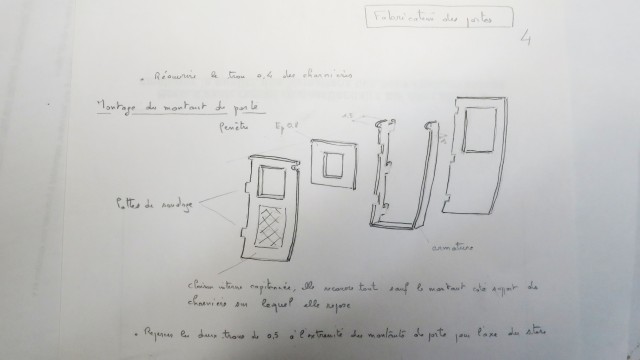 Fabrication des portes
4
• Réouvrir le trou 0,4 des charnières
Montage du montant de porte
fenêtre
Ep 0.8
1.5
Pattes de soudage
armature
cloison interne capitonnée, elle recouvre tout sauf le montant côté support de
charnière sur lequel elle repose
• Repercer les deux trous de 0,5 à l'extrémité des montants de porte pour l'axe du store